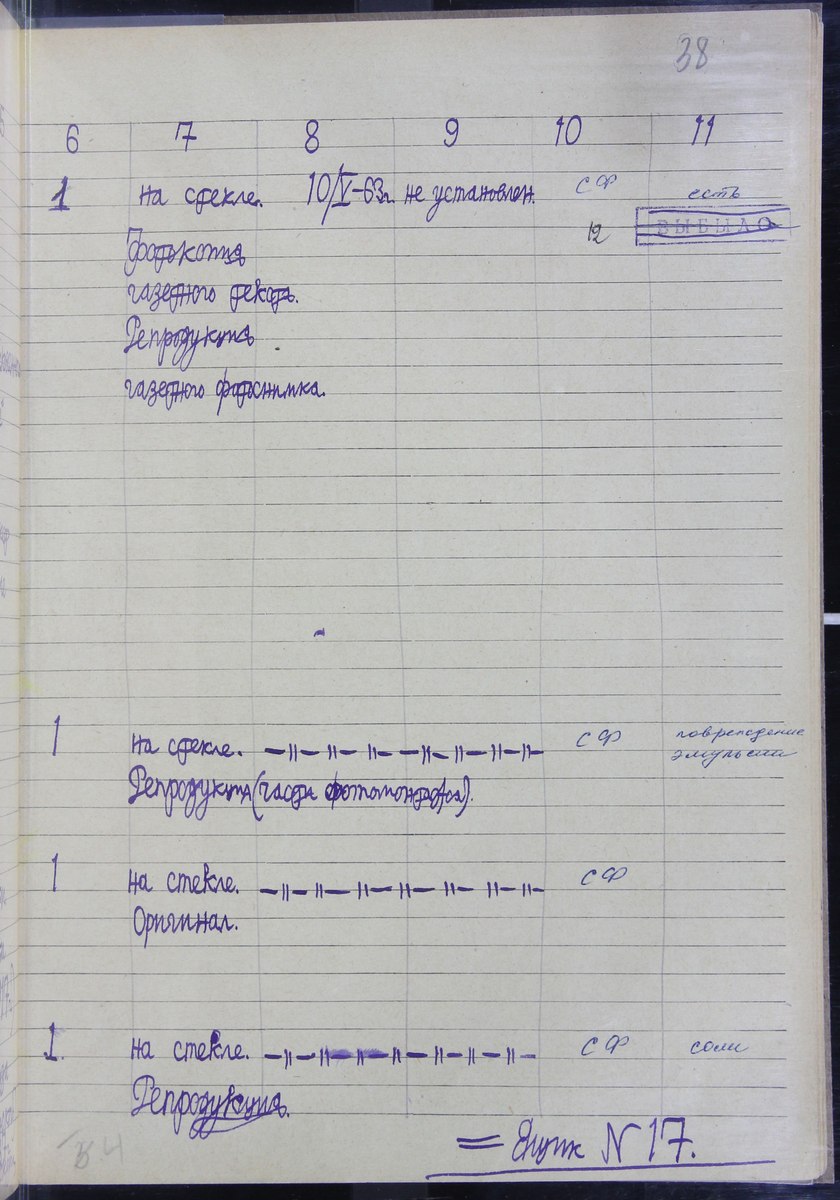 38
6 7 8 9 10 11
1 на стекле. 10/V-63г. не установлен. СФ есть
12 ВЫБЫЛО
Фотокопия
газетного текста.
Репродукция
газетного фотоснимка.
1 на стекле. –||–||–||–||–||–||–||– СФ повреждение
эмульсии
Репродукция (части фотомонтажа).
1 на стекле. –||–||–||–||–||–||– СФ
Оригинал.
1. на стекле. –||–||–||–||–||–||– СФ соли
Репродукция.
= Ящик N 17.